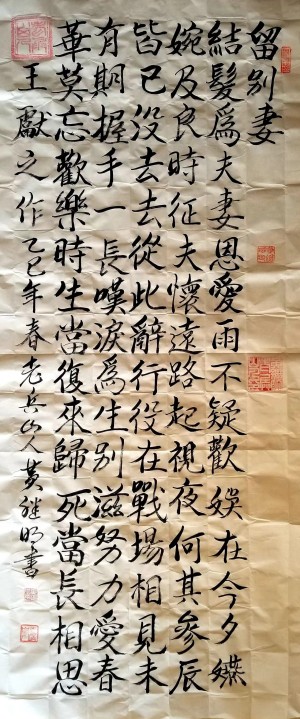 留别妻
結髮爲夫妻恩愛雨不疑歡娛在今夕嬿
婉及良時征夫懷遠路起視夜何其參辰
皆已没去去從此辭行役在戰場相見未
有期握手一長嘆淚爲生别滋努力愛春
華莫忘歡樂時生當復來歸死當長相思
王獻之作乙巳年春老兵山人黄继明書